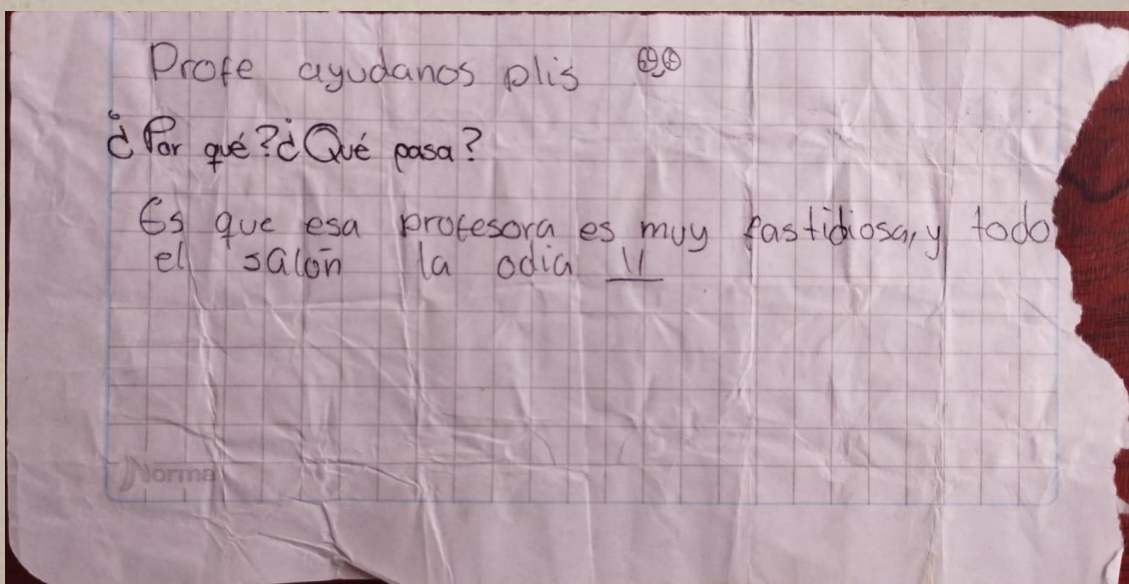 Profe ayudanos plis
¿Por qué? ¿Qué pasa?
Es que esa profesora es muy fastidiosa, y todo
el salón la odia
Norma